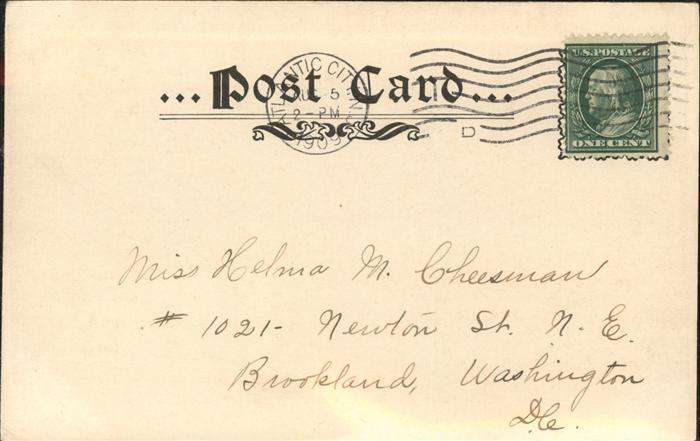 ...Post Card...
ATLANTIC CITY, N.J.
5
2-PM
1909
D
U.S. POSTAGE
ONE CENT
Miss Helma M. Cheesman
# 1021- Newton St. N. E.
Brookland, Washington
D.C.